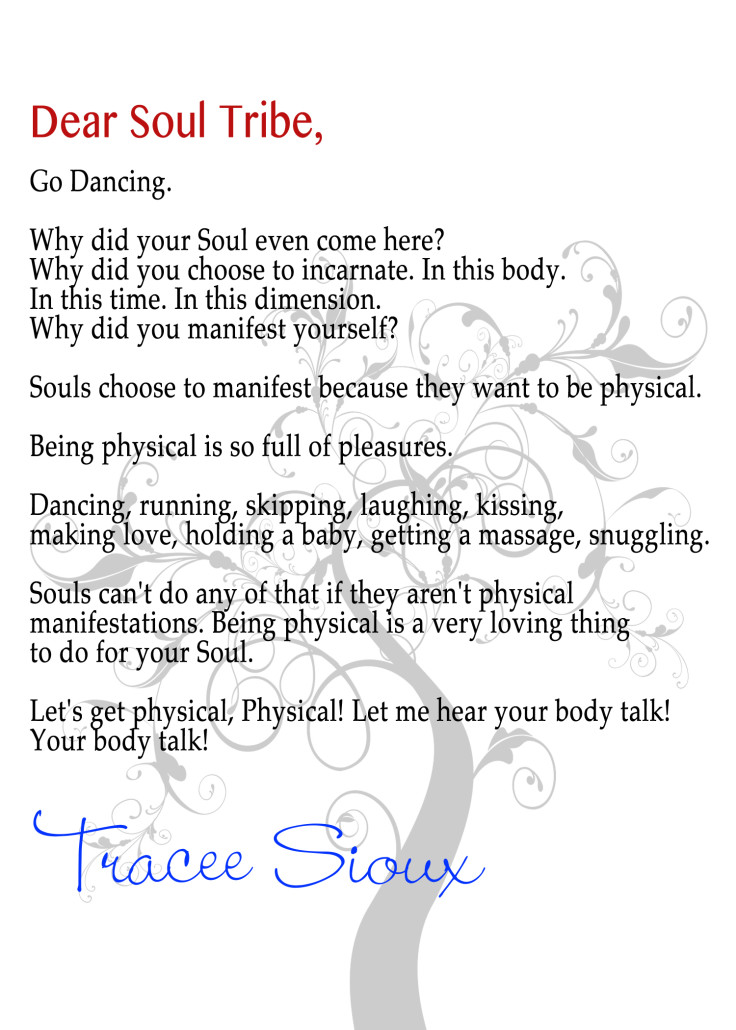 Dear Soul Tribe,
Go Dancing.
Why did your Soul even come here?
Why did you choose to incarnate. In this body.
In this time. In this dimension.
Why did you manifest yourself?
Souls choose to manifest because they want to be physical.
Being physical is so full of pleasures.
Dancing, running, skipping, laughing, kissing,
making love, holding a baby, getting a massage, snuggling.
Souls can't do any of that if they aren't physical
manifestations. Being physical is a very loving thing
to do for your Soul.
Let's get physical, Physical! Let me hear your body talk!
Your body talk!
Tracee Sioux